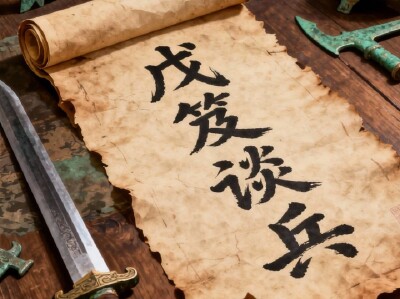 戊笈谈兵